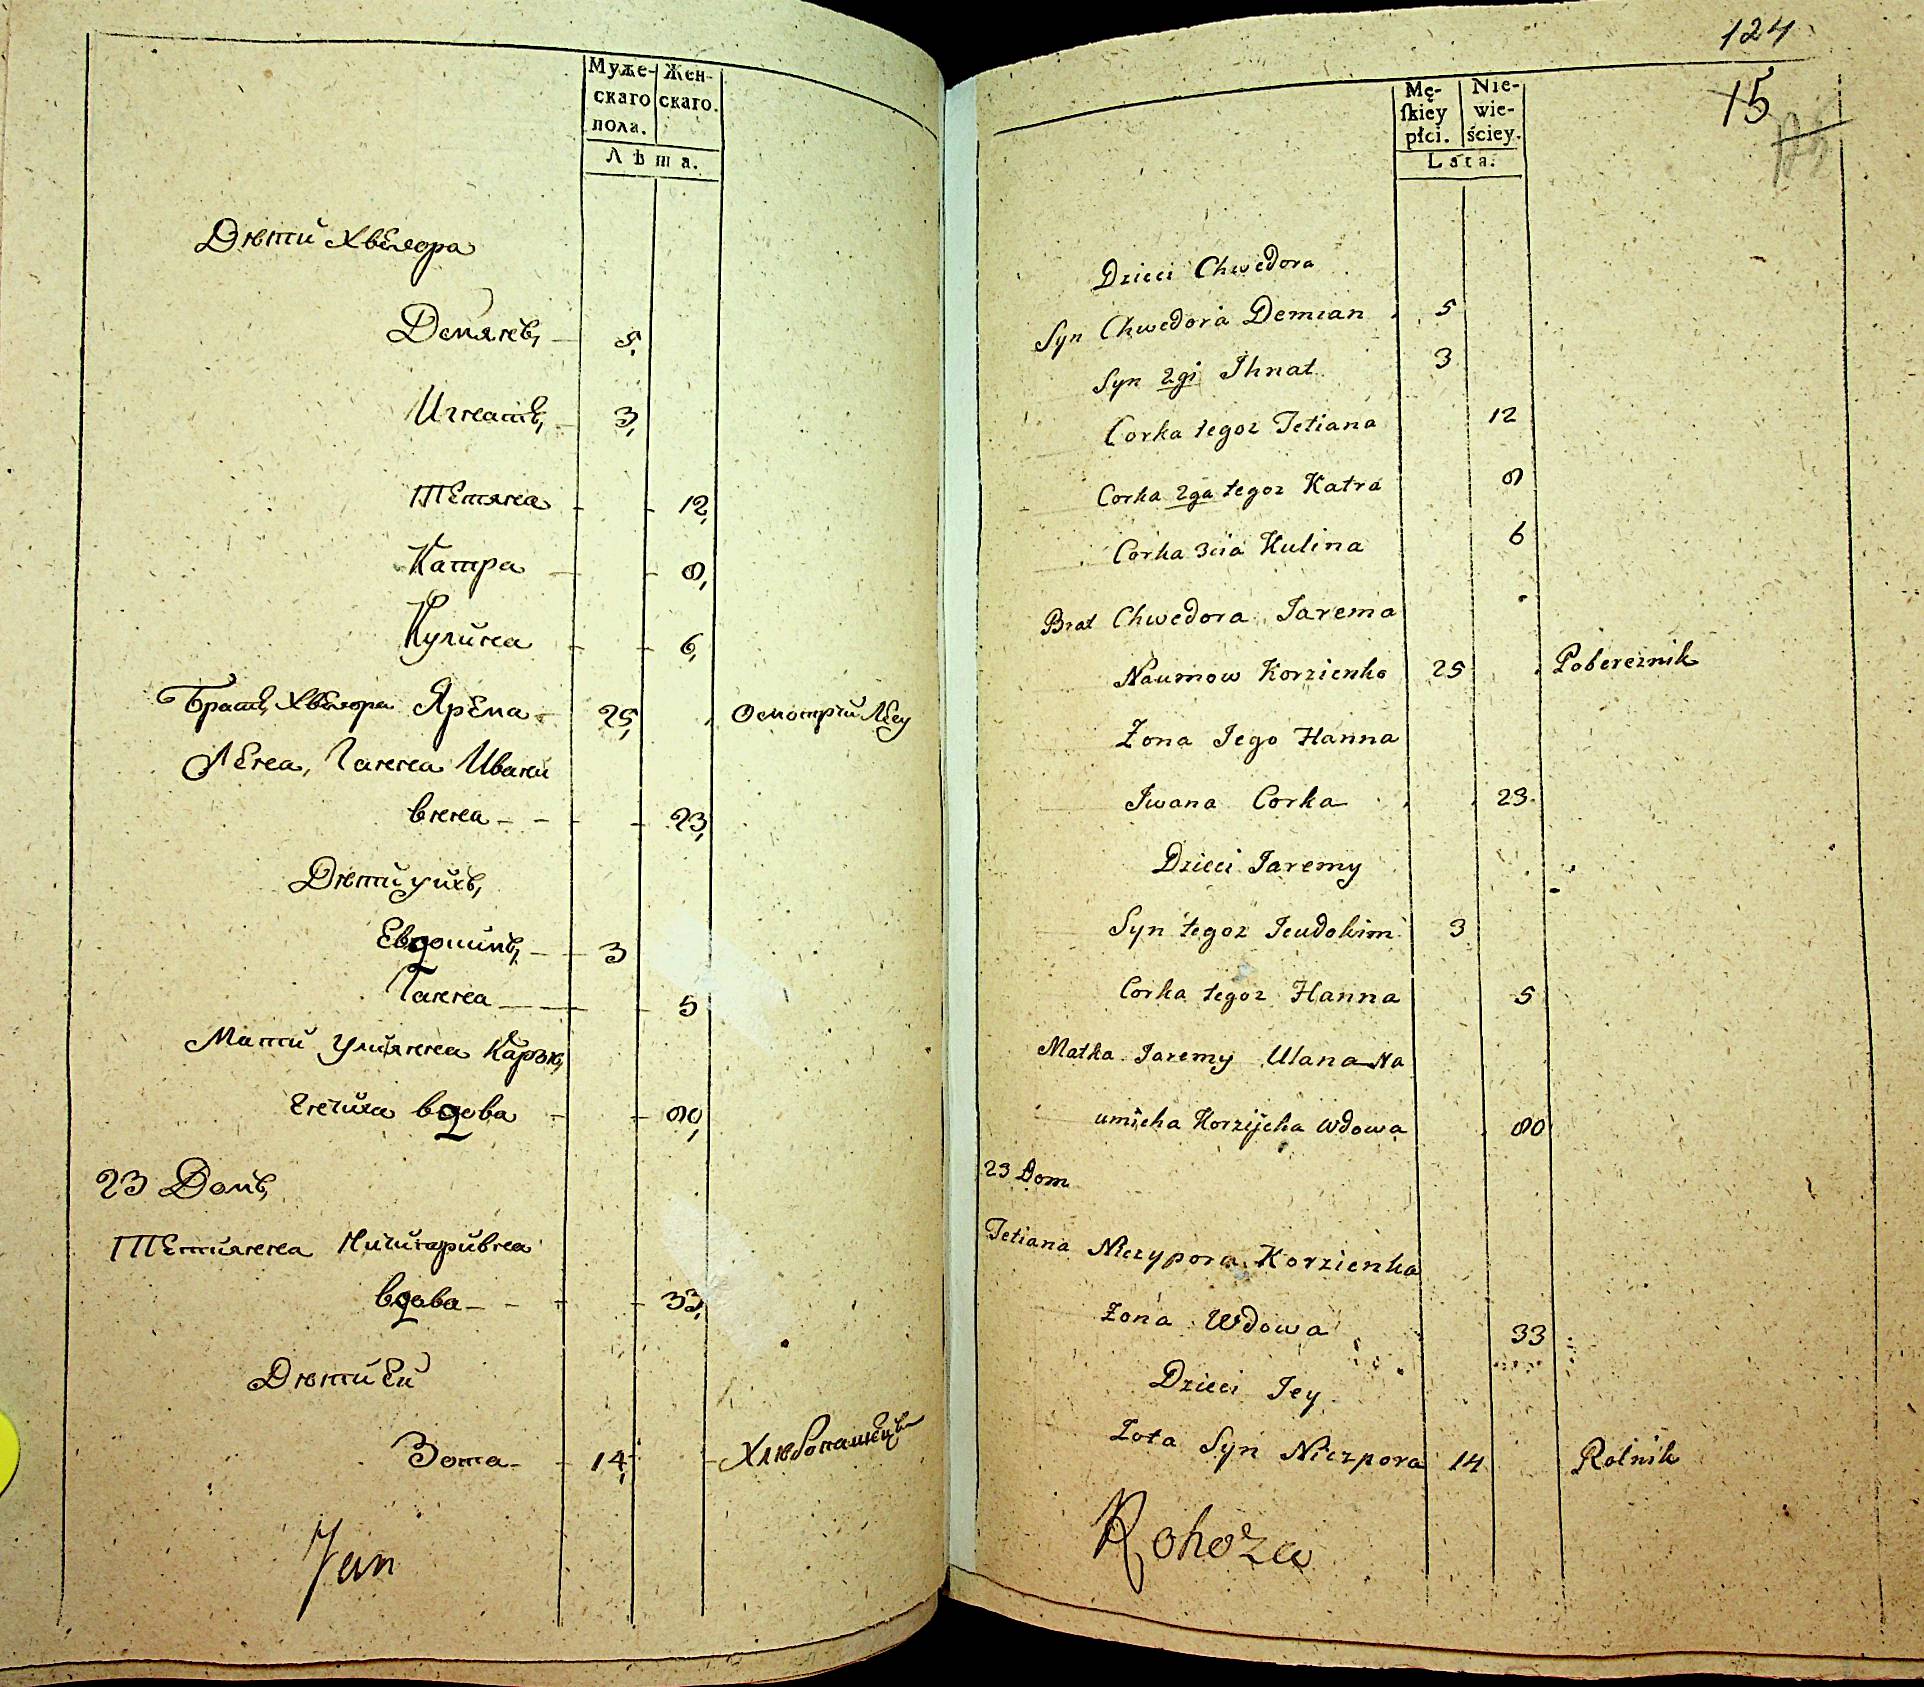 Муже-
скаго
пола.
Жен-
скаго.
Лѣта.
Дѣти Хведора
Демянъ 5,
Игнатъ, 3,
Тетяна 12,
Катра 8,
Кулина 6,
Братъ, Хведора Ярема 25, Осмотрти Лесу
Жена, Ганна Ивани
вена - - 23,
Дѣти ихъ,
Евдошимъ, 3
Ганна 5
Мати Улиянна Карзи,
енчиха вдова 80,
23 Домъ,
Тетиянна Ничипоривна
вдова - - 33,
Дѣти Еи
Зота - 14, Хлѣбопашецъ
Jan
124
15
Mę-
ſkiey
płci.
Nie-
wie-
ściey.
Lata.
Dzieci Chwedora
Syn Chwedora Demian 5
Syn 2gi Ihnat 3
Corka tegoz Tetiana 12
Corka 2ga tegoz Katra 8
Corka 3cia Kulina 6
Brat Chwedora Jarema
Naumow Korzienko 25 Pobereznik
Zona Jego Hanna
Iwana Corka 23
Dzieci Jaremy
Syn tegoz Jeudokim 3
Corka tegoz Hanna 5
Matka Jaremy Ulana Na
umicha Korzijcha Wdowa 80
23 Dom
Tetiana Niczypora Korzienka
Zona Wdowa 33
Dzieci Jey
Zota Syn Niczpora 14 Rolnik
Rohoza